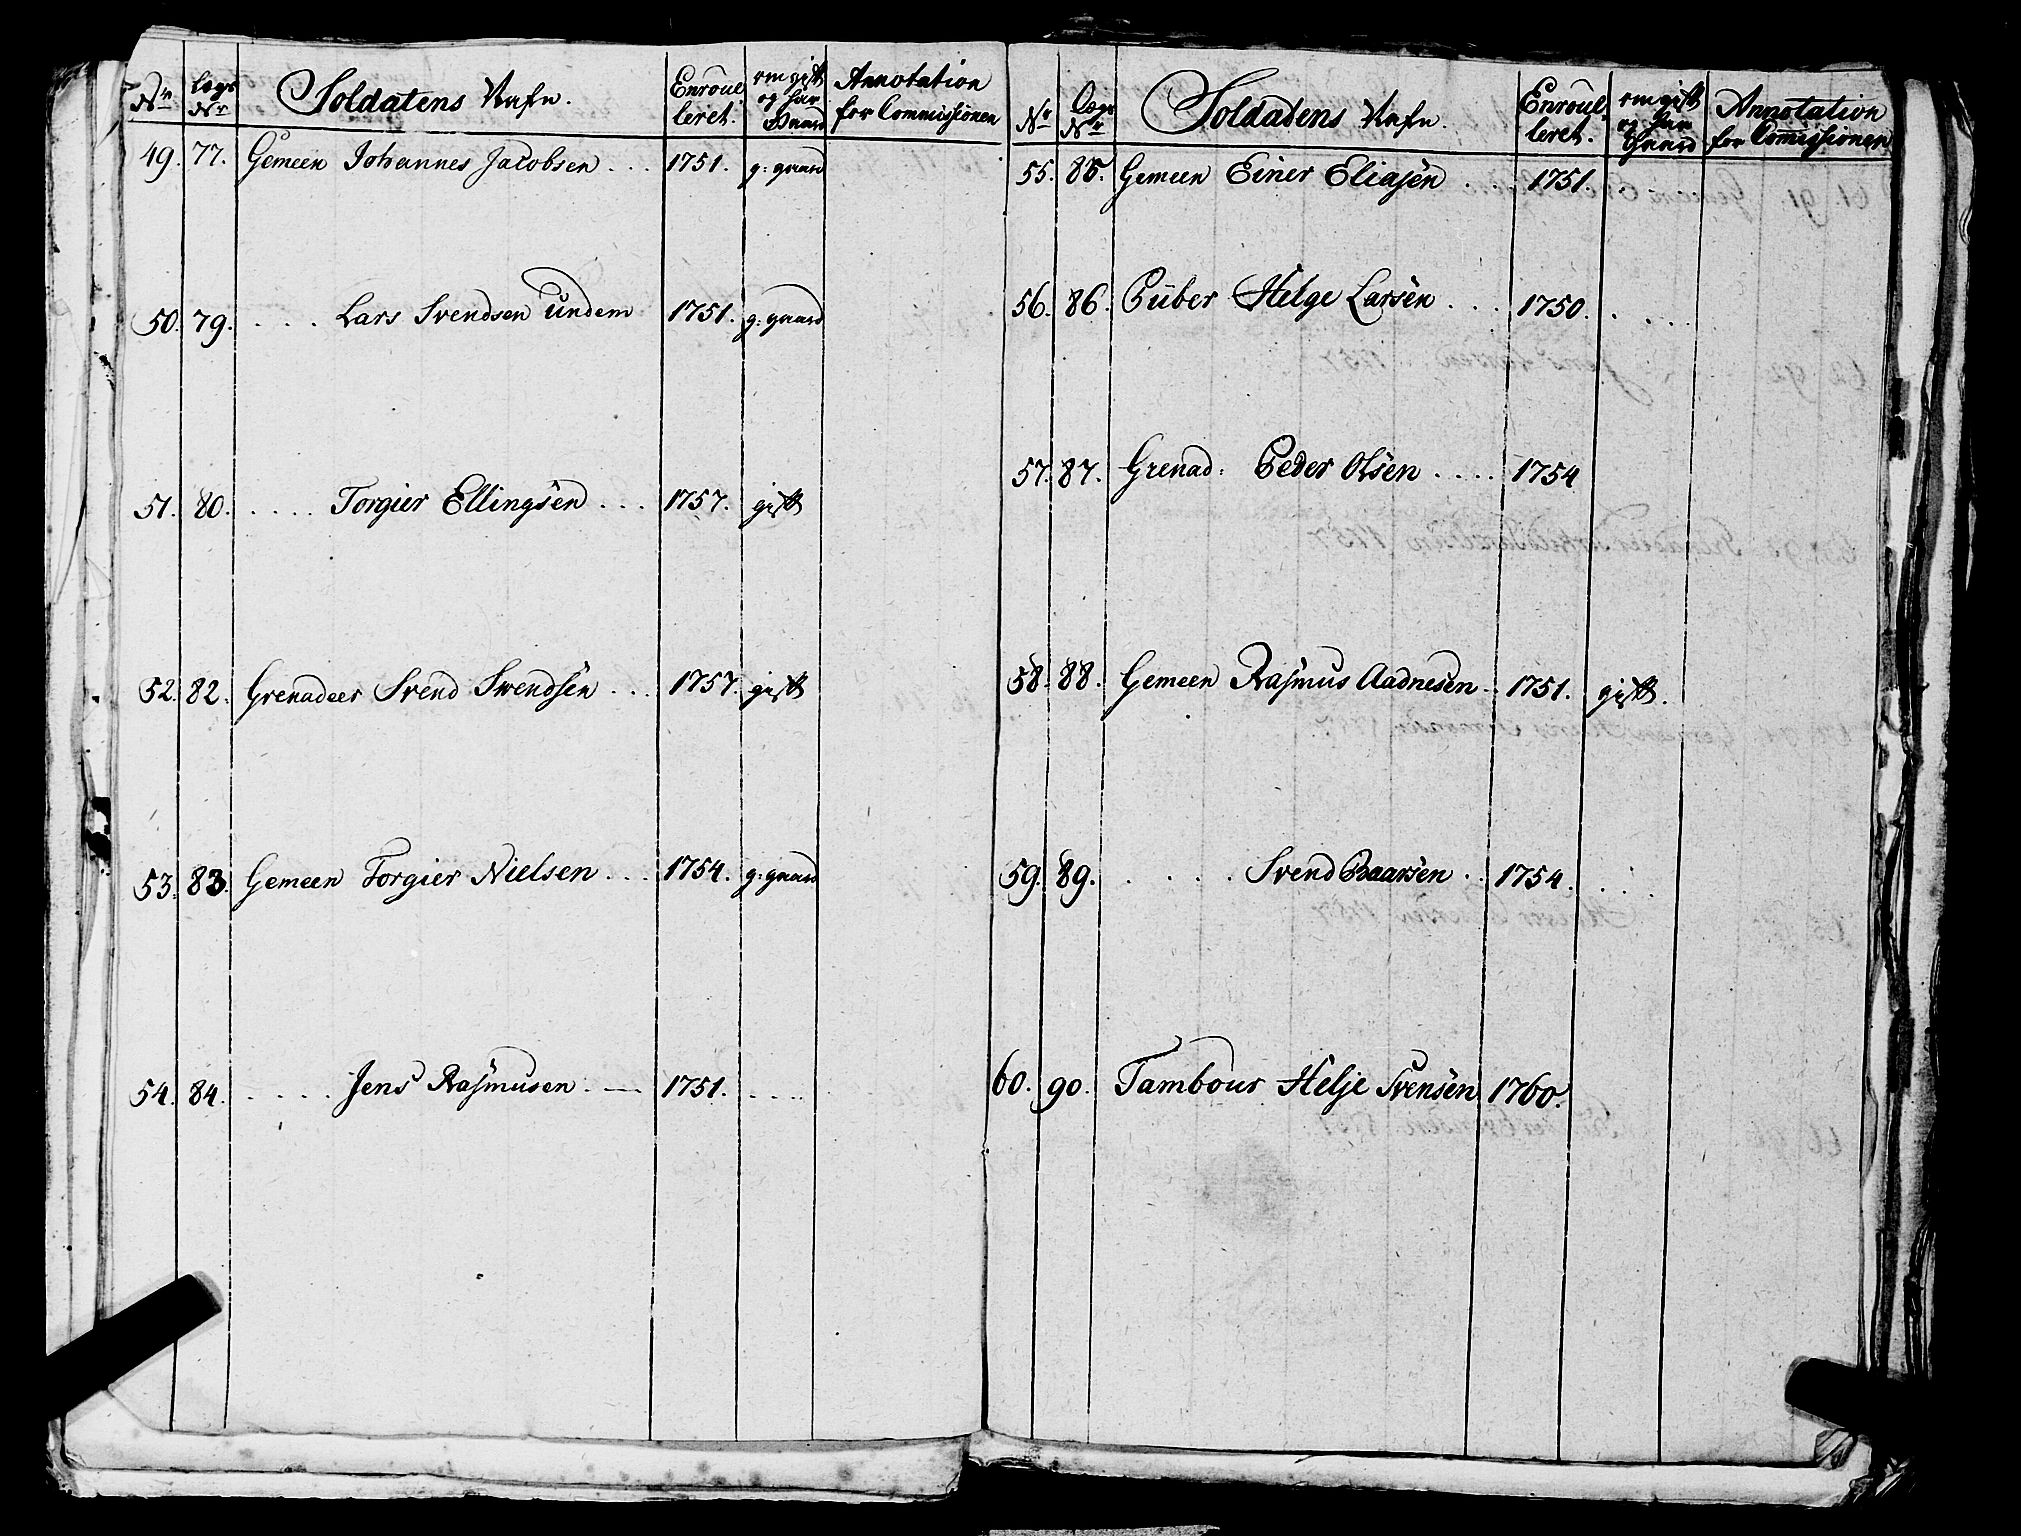 No Lægs No Soldatens Nafn. Enroulleret. om gift og har Gaard Annotation for Commissionen
49. 77. Gemeen Johannes Jacobsen ... 1751. g: gaard
50. 79. .... Lars Svendsen Undem 1751. g: gaard
51. 80. .... Torgier Ellingsen ... 1757. gift
52. 82. Grenadeer Svend Svendsen ... 1757. gift
53. 83. Gemeen Torgier Nielsen ... 1754. g: gaard
54. 84. ..... Jens Rasmusen . — 1751. ....
No Lægs No Soldatens Nafn. Enroulleret. om gift og har Gaard Annotation for Comissionen
55. 85. Gemeen Einer Eliasen .. 1751. .
56. 86. Piiber Helge Larsen ... 1750. ....
57. 87. Grenad: Peder Olsen .... 1754
58. 88. Gemeen Rasmus Aadnesen .. 1751. gift.
59. 89. .... Svend Baarsen .. 1754. ...
60. 90. Tambour Helje Svensen 1760.